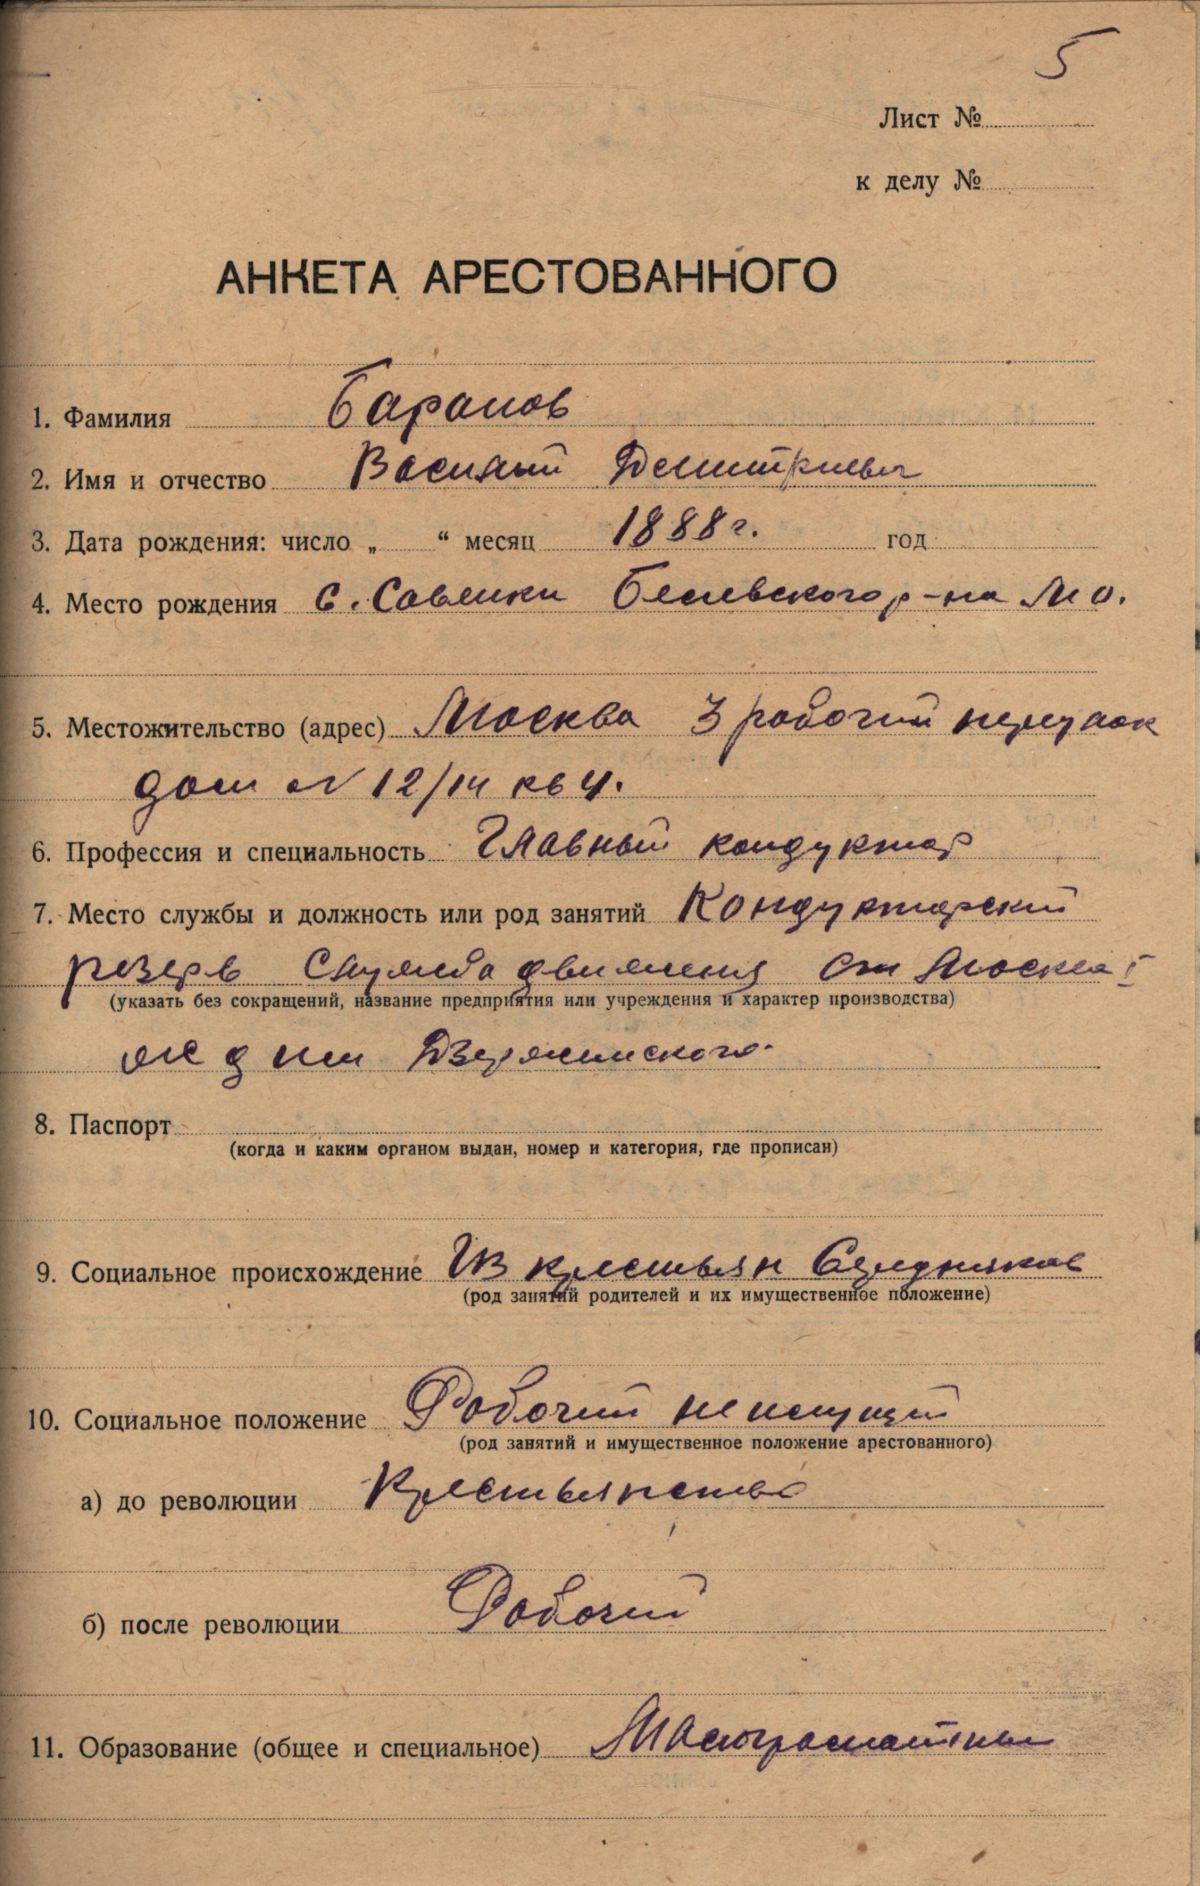 5
Лист №
к делу №
АНКЕТА АРЕСТОВАННОГО
1. Фамилия Баранов
2. Имя и отчество Василий Дмитриевич
3. Дата рождения: число „ “ месяц 1888 г. год
4. Место рождения с. Савенки р-на М о.
5. Местожительство (адрес) Москва 3 рабочий переулок
дом № 12/14 кв 4.
6. Профессия и специальность Главный кондуктор
7. Место службы и должность или род занятий Кондукторский
резерв Служба движения ст Москва I
(указать без сокращений, название предприятия или учреждения и характер производства)
ж д им Дзержинского.
8. Паспорт
(когда и каким органом выдан, номер и категория, где прописан)
9. Социальное происхождение Из крестьян Середняков
(род занятий родителей и их имущественное положение)
10. Социальное положение Рабочий неимущий
(род занятий и имущественное положение арестованного)
а) до революции Крестьянство
б) после революции Рабочий
11. Образование (общее и специальное) Малограмотный